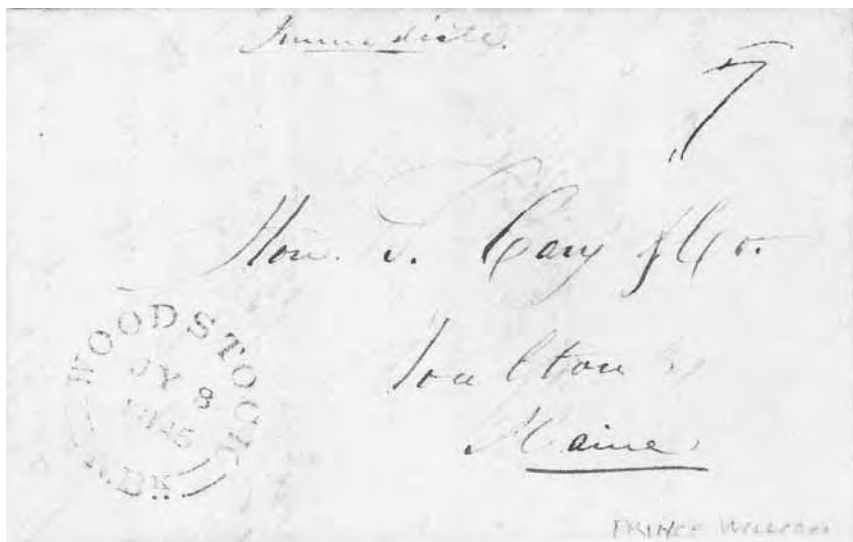 Immediate.
7
Hon. S. Cary & Co.
Houlton
Maine
WOODSTOCK
JY 8
N.BK.
PRINCE WILLIAM